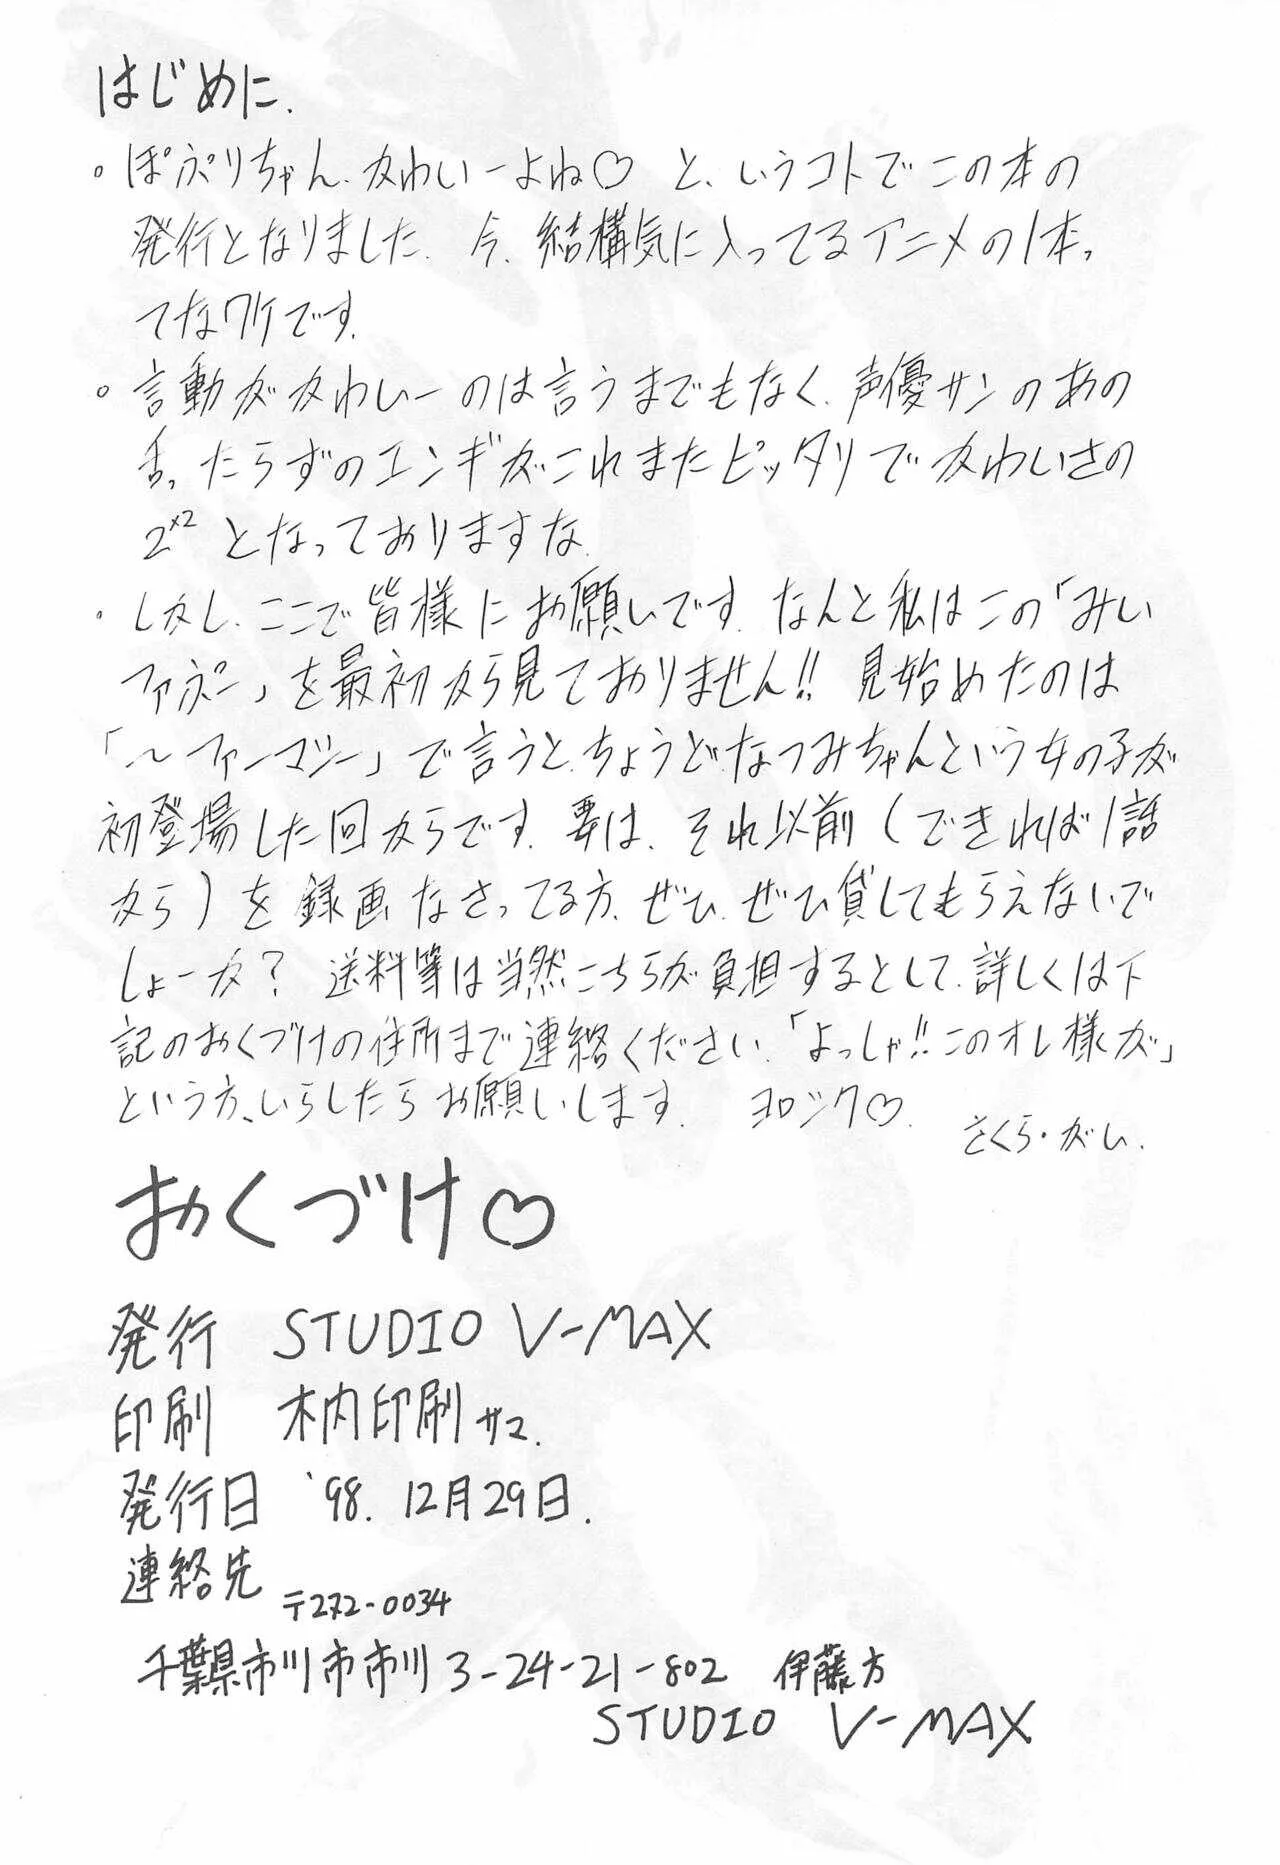 はじめに.
。ぽぷりちゃん、かわいーよね♡ と、いうコトでこの本の
発行となりました. 今、結構気に入ってるアニメの1本っ
てなワケです.
。言動がかわいーのは言うまでもなく、声優サンのあの
舌ったらずのエンギがこれまたピッタリでかわいさの
2×2 となっておりますな.
・しかし、ここで皆様にお願いです. なんと私はこの「みい
ファぷー」を最初から見ておりません!! 見始めたのは
「〜ファーマシー」で言うと、ちょうど、なつみちゃんという女の子が
初登場した回からです. 要は、それ以前（できれば1話
から）を録画なさってる方、ぜひ、ぜひ貸してもらえないで
しょーか? 送料等は当然こちらが負担するとして、詳しくは下
記のおくづけの住所まで連絡ください.「よっしゃ!!このオレ様が」
という方、いらしたらお願いします. ヨロシク♡.
さくら・がい.
おくづけ♡
発行 STUDIO V-MAX
印刷 木内印刷サマ.
発行日 '98. 12月29日.
連絡先
〒272-0034
千葉県市川市市川3-24-21-802 伊藤方
STUDIO V-MAX